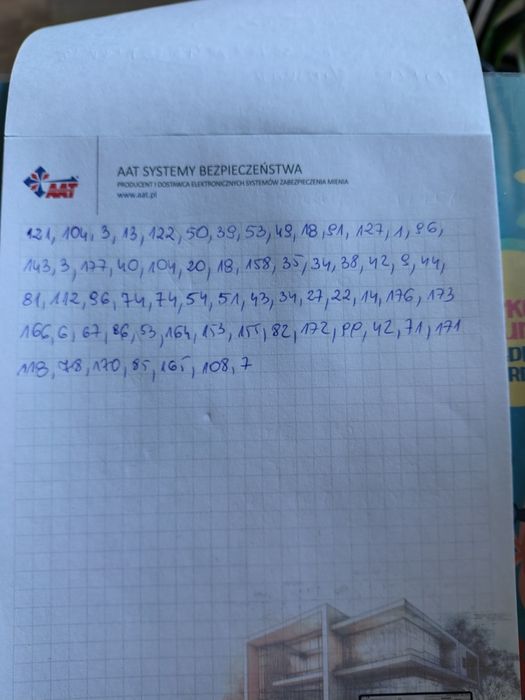 AAT
AAT SYSTEMY BEZPIECZEŃSTWA
PRODUCENT I DOSTAWCA ELEKTRONICZNYCH SYSTEMÓW ZABEZPIECZENIA MIENIA
www.aat.pl
121, 104, 3, 13, 122, 50, 39, 53, 49, 18, 91, 127, 1, 96,
143, 3, 177, 40, 104, 20, 18, 158, 35, 34, 38, 42, 9, 44,
81, 112, 96, 74, 74, 54, 51, 43, 34, 27, 22, 14, 176, 173
166, 6, 67, 86, 53, 164, 153, 155, 82, 172, 99, 42, 71, 171
118, 78, 170, 85, 165, 108, 7